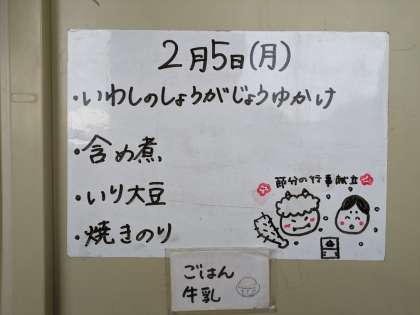 2月5日(月)
・いわしのしょうがじょうゆかけ
・含め煮
・いり大豆
節分の行事献立
・焼きのり
ごはん
牛乳